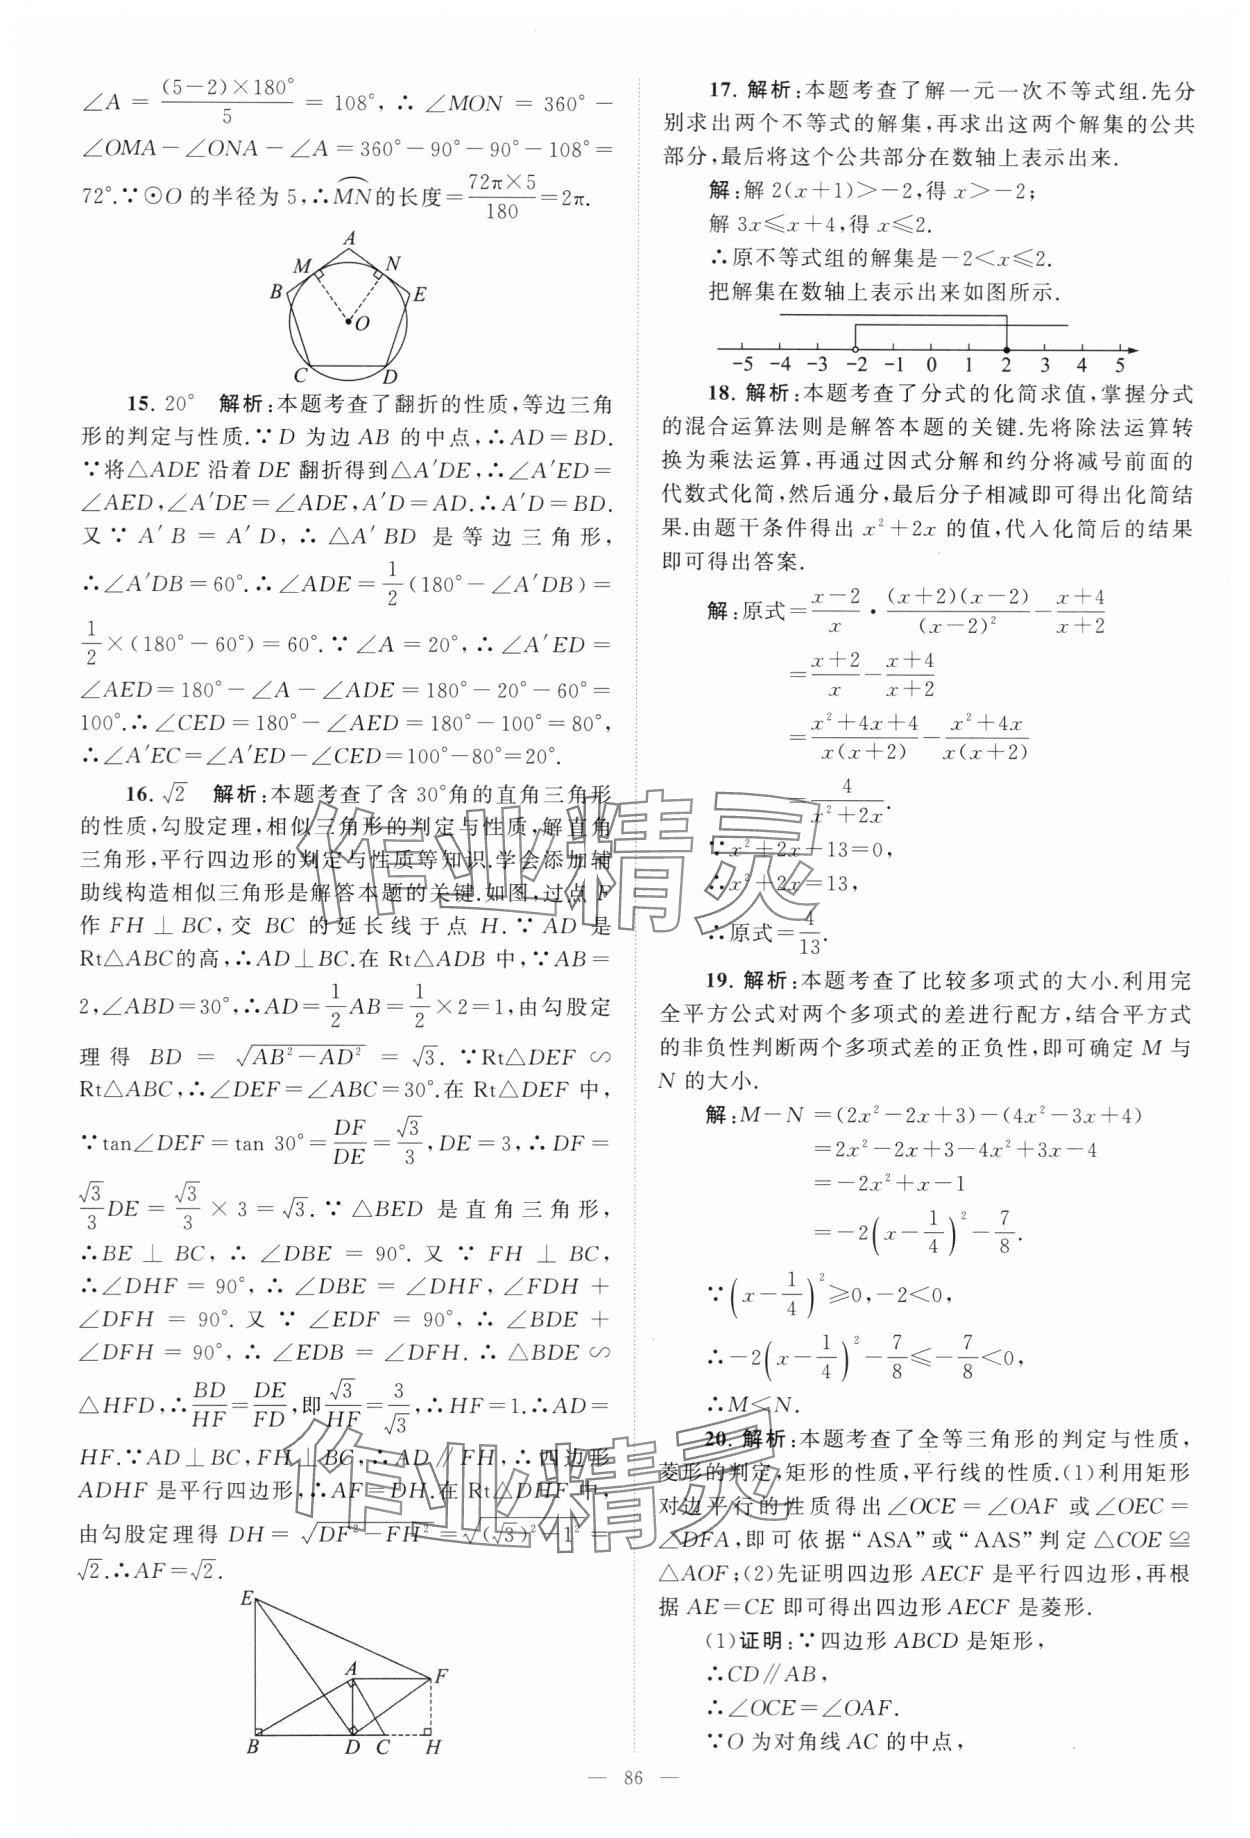 ∠A = (5−2)×180°/5 = 108°, ∴ ∠MON = 360° −
∠OMA − ∠ONA − ∠A = 360° − 90° − 90° − 108° =
72°. ∵ ⊙O 的半径为 5, ∴ M͡N 的长度 = 72π×5/180 = 2π.
A
M
N
B
E
O
C
D
15. 20° 解析:本题考查了翻折的性质,等边三角
形的判定与性质.∵D 为边 AB 的中点,∴AD=BD.
∵将△ADE 沿着 DE 翻折得到△A′DE,∴∠A′ED=
∠AED,∠A′DE=∠ADE,A′D=AD.∴A′D=BD.
又∵ A′B = A′D, ∴ △A′BD 是等边三角形,
∴∠A′DB=60°.∴∠ADE=1/2(180°−∠A′DB)=
1/2×(180°−60°)=60°.∵∠A=20°,∴∠A′ED=
∠AED=180°−∠A−∠ADE=180°−20°−60°=
100°.∴∠CED=180°−∠AED=180°−100°=80°,
∴∠A′EC=∠A′ED−∠CED=100°−80°=20°.
16. √2 解析:本题考查了含 30°角的直角三角形
的性质,勾股定理,相似三角形的判定与性质,解直角
三角形,平行四边形的判定与性质等知识.学会添加辅
助线构造相似三角形是解答本题的关键.如图,过点 F
作 FH ⊥ BC, 交 BC 的延长线于点 H.∵ AD 是
Rt△ABC的高,∴AD⊥BC.在 Rt△ADB 中,∵AB=
2,∠ABD=30°,∴AD=1/2AB=1/2×2=1,由勾股定
理得 BD = √(AB²−AD²) = √3. ∵Rt△DEF ∽
Rt△ABC,∴∠DEF=∠ABC=30°.在 Rt△DEF 中,
∵tan∠DEF=tan 30°=DF/DE=√3/3,DE=3,∴DF=
√3/3DE=√3/3×3=√3.∵△BED 是直角三角形,
∴BE ⊥ BC, ∴ ∠DBE = 90°. 又 ∵ FH ⊥ BC,
∴∠DHF = 90°, ∴ ∠DBE = ∠DHF, ∠FDH +
∠DFH = 90°. 又 ∵ ∠EDF = 90°, ∴ ∠BDE +
∠DFH = 90°, ∴ ∠EDB = ∠DFH. ∴ △BDE ∽
△HFD,∴BD/HF=DE/FD,即√3/HF=3/√3,∴HF=1.∴AD=
HF.∵AD⊥BC,FH⊥BC,∴AD∥FH,∴四边形
ADHF 是平行四边形,∴AF=DH.在 Rt△DHF 中,
由勾股定理得 DH=√(DF²−FH²)=√((√3)²−1²)=
√2.∴AF=√2.
E
A
F
B
D
C
H
17. 解析:本题考查了解一元一次不等式组.先分
别求出两个不等式的解集,再求出这两个解集的公共
部分,最后将这个公共部分在数轴上表示出来.
解:解 2(x+1)>−2,得 x>−2;
解 3x≤x+4,得 x≤2.
∴原不等式组的解集是−2<x≤2.
把解集在数轴上表示出来如图所示.
−5 −4 −3 −2 −1 0 1 2 3 4 5
18. 解析:本题考查了分式的化简求值,掌握分式
的混合运算法则是解答本题的关键.先将除法运算转
换为乘法运算,再通过因式分解和约分将减号前面的
代数式化简,然后通分,最后分子相减即可得出化简结
果.由题干条件得出 x²+2x 的值,代入化简后的结果
即可得出答案.
解:原式=(x−2)/x·(x+2)(x−2)/(x−2)²−(x+4)/(x+2)
=(x+2)/x−(x+4)/(x+2)
=(x²+4x+4)/x(x+2)−(x²+4x)/x(x+2)
=4/(x²+2x).
∵x²+2x−13=0,
∴x²+2x=13,
∴原式=4/13.
19. 解析:本题考查了比较多项式的大小.利用完
全平方公式对两个多项式的差进行配方,结合平方式
的非负性判断两个多项式差的正负性,即可确定 M 与
N 的大小.
解:M−N=(2x²−2x+3)−(4x²−3x+4)
=2x²−2x+3−4x²+3x−4
=−2x²+x−1
=−2(x−1/4)²−7/8.
∵(x−1/4)²≥0,−2<0,
∴−2(x−1/4)²−7/8≤−7/8<0,
∴M<N.
20. 解析:本题考查了全等三角形的判定与性质,
菱形的判定,矩形的性质,平行线的性质.(1)利用矩形
对边平行的性质得出∠OCE=∠OAF 或∠OEC=
∠DFA,即可依据“ASA”或“AAS”判定△COE≌
△AOF;(2)先证明四边形 AECF 是平行四边形,再根
据 AE=CE 即可得出四边形 AECF 是菱形.
(1)证明:∵四边形 ABCD 是矩形,
∴CD∥AB,
∴∠OCE=∠OAF.
∵O 为对角线 AC 的中点,
— 86 —
作业精灵
作业精灵